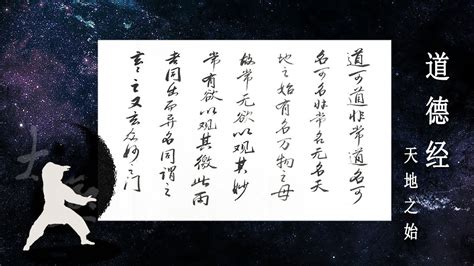 道德经
天地之始
道可道非常道名可
名可名非常名无名天
地之始有名万物之母
故常无欲以观其妙
常有欲以观其徼此两
者同出而异名同谓之
玄〻之又玄众妙之门